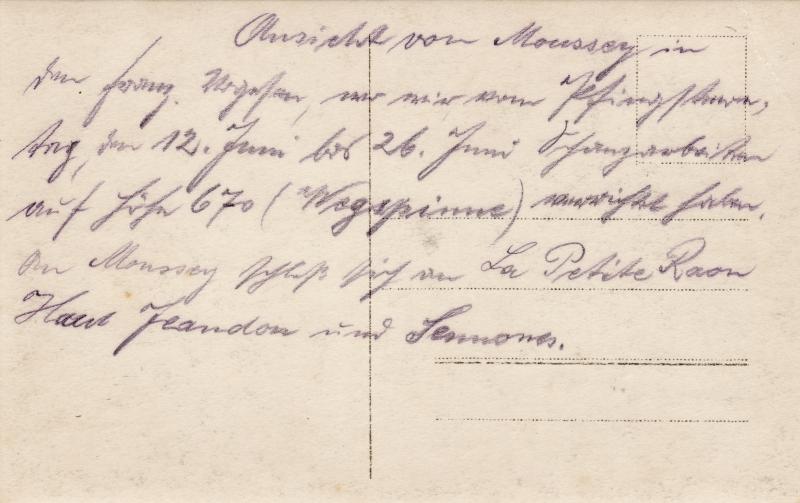 Ansicht von Moussey in
den franz. Vogesen, wo wir vom Pfingstsonn-
tag, den 12. Juni bis 26. Juni Schanzarbeiten
auf Höhe 670 (Wegspinne) verrichtet haben.
An Moussey schließt sich an La Petite Raon
Haut Jeandon und Sennones.